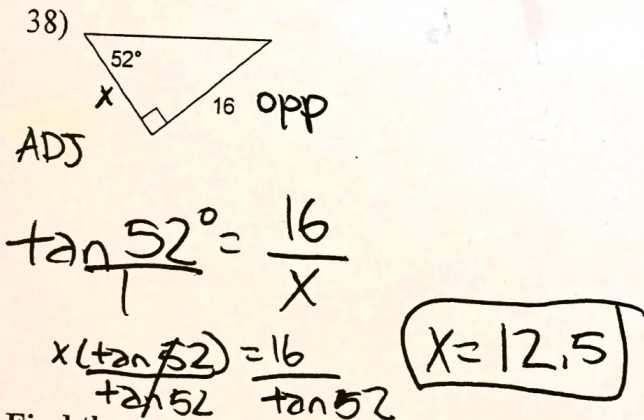 38)
52°
x 16 opp
ADJ
tan 52° = 16
1 x
x(tan 52) = 16
tan 52 tan 52
x = 12.5